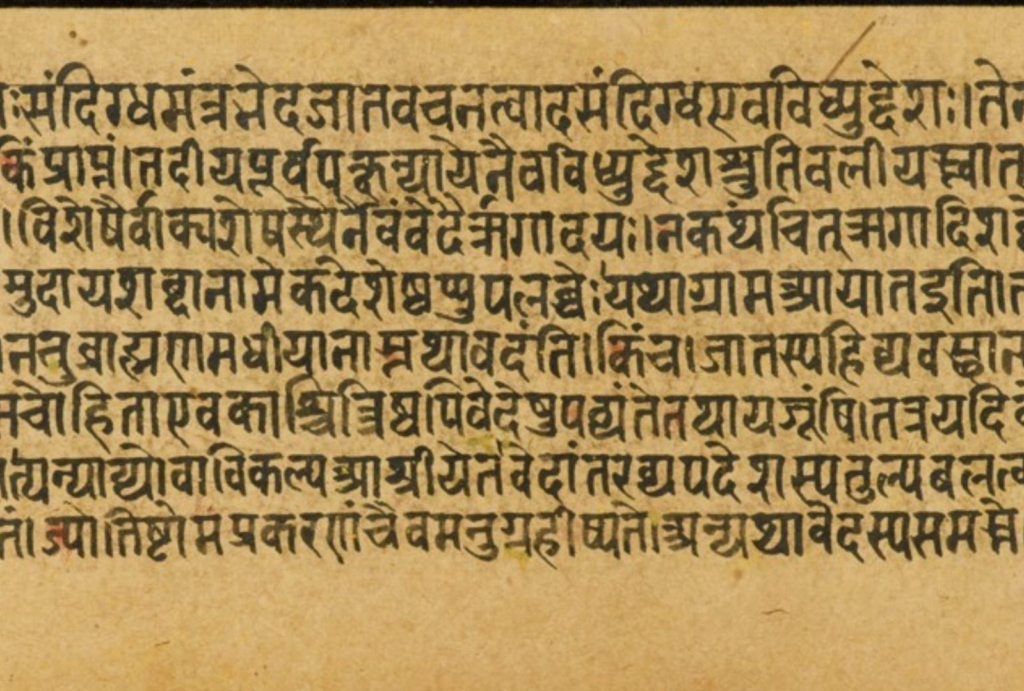 ःसंदिग्धमंत्रमेदजातवचनत्वादसंदिग्धएवविध्युद्देशः।तेन
किंप्राप्तं।तदीयपूर्वपक्षन्यायेनैवविध्युद्देशस्तुतिबलीयस्त्वात
।विशेषैर्वाक्यशेषस्थैर्नैवंवेदैर्ऋगादयः।नकथंचित्ऋगादिशब्दै
मुदायशब्दानामेकदेशेष्वप्युपलब्धेःयथाग्रामआयातइति।त
ननुब्राह्मणमधीयानास्तथावदंति।किंच।जातस्यहिव्यवस्थान
नचोहिताएवकाश्चित्त्रिष्वपिवेदेषुपठ्यंतेतथायजूंषि।तत्रयदिवे
त्यन्याय्योवाविकल्पआश्रीयेतवेदांतरव्यपदेशस्यतुल्यबलत्व
तं।ज्योतिष्टोमप्रकरणंचैवमनुग्रहीष्यतेअन्यथावेदस्यसमस्ते